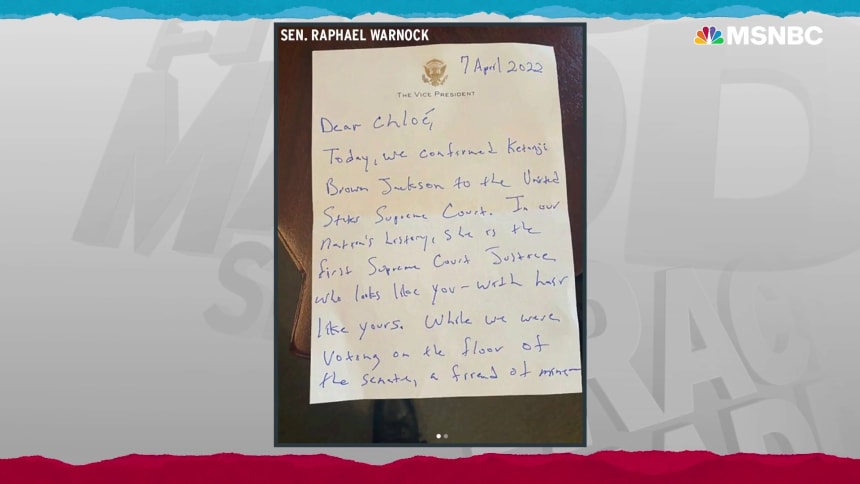 SEN. RAPHAEL WARNOCK
MSNBC
7 April 2022
THE VICE PRESIDENT
Dear Chloé,
Today, we confirmed Ketanji
Brown Jackson to the United
States Supreme Court. In our
Nation's history, she is the
first Supreme Court Justice
who looks like you - with hair
like yours. While we were
voting on the floor of
the senate, a friend of mine